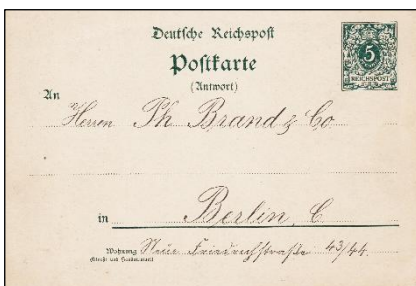 Deutsche Reichspost
Postkarte
(Antwort)
5
REICHSPOST
An
Herren Ph Brand & Co
in Berlin, C
Wohnung Neue Friedrichstraße 43/44.
(Straße und Hausnummer)